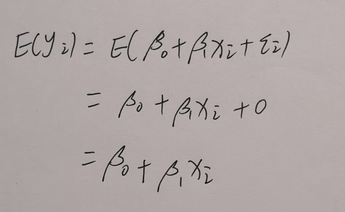 E(yᵢ) = E(β₀+β₁xᵢ+εᵢ)
= β₀ + β₁xᵢ + 0
= β₀ + β₁xᵢ